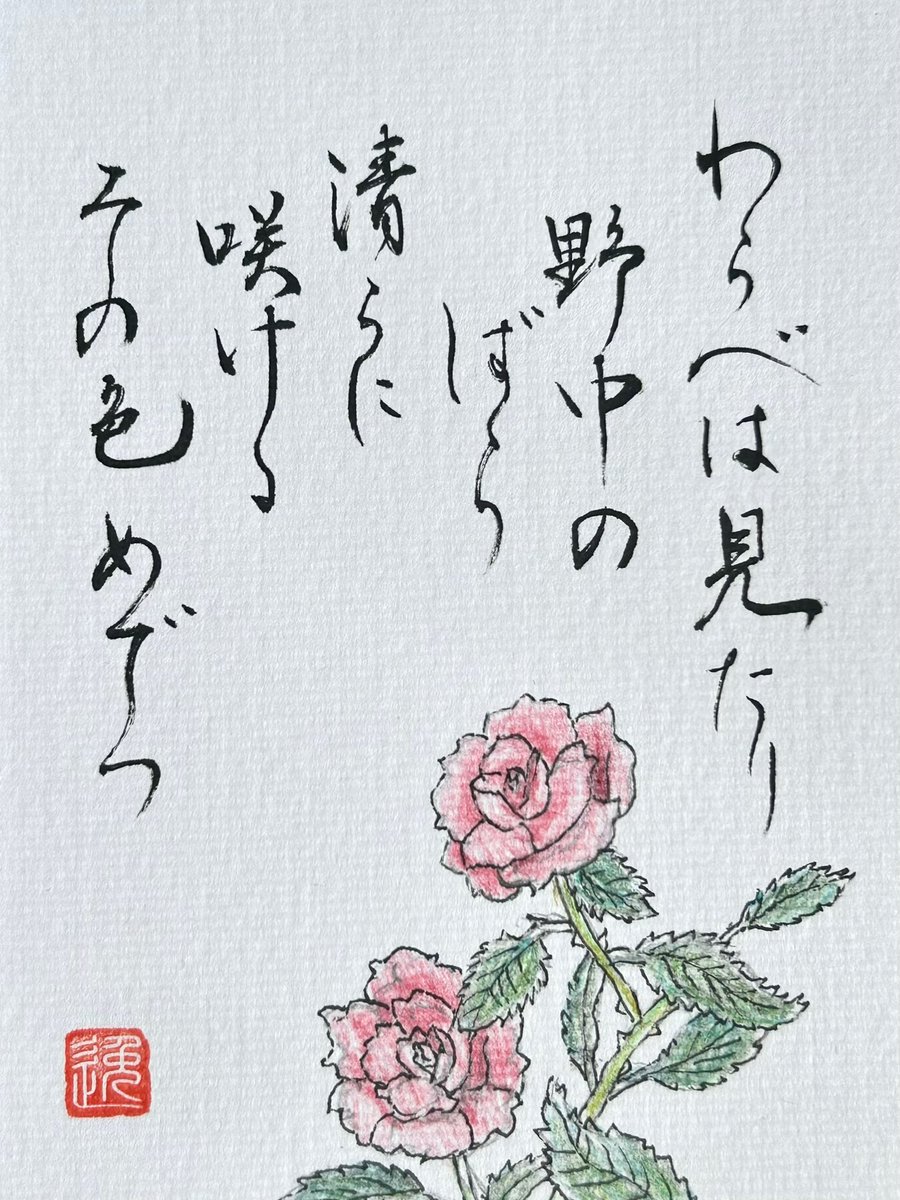 わらべは見たり
野中の
ばら
清らに
咲ける
その色めでつ
逸